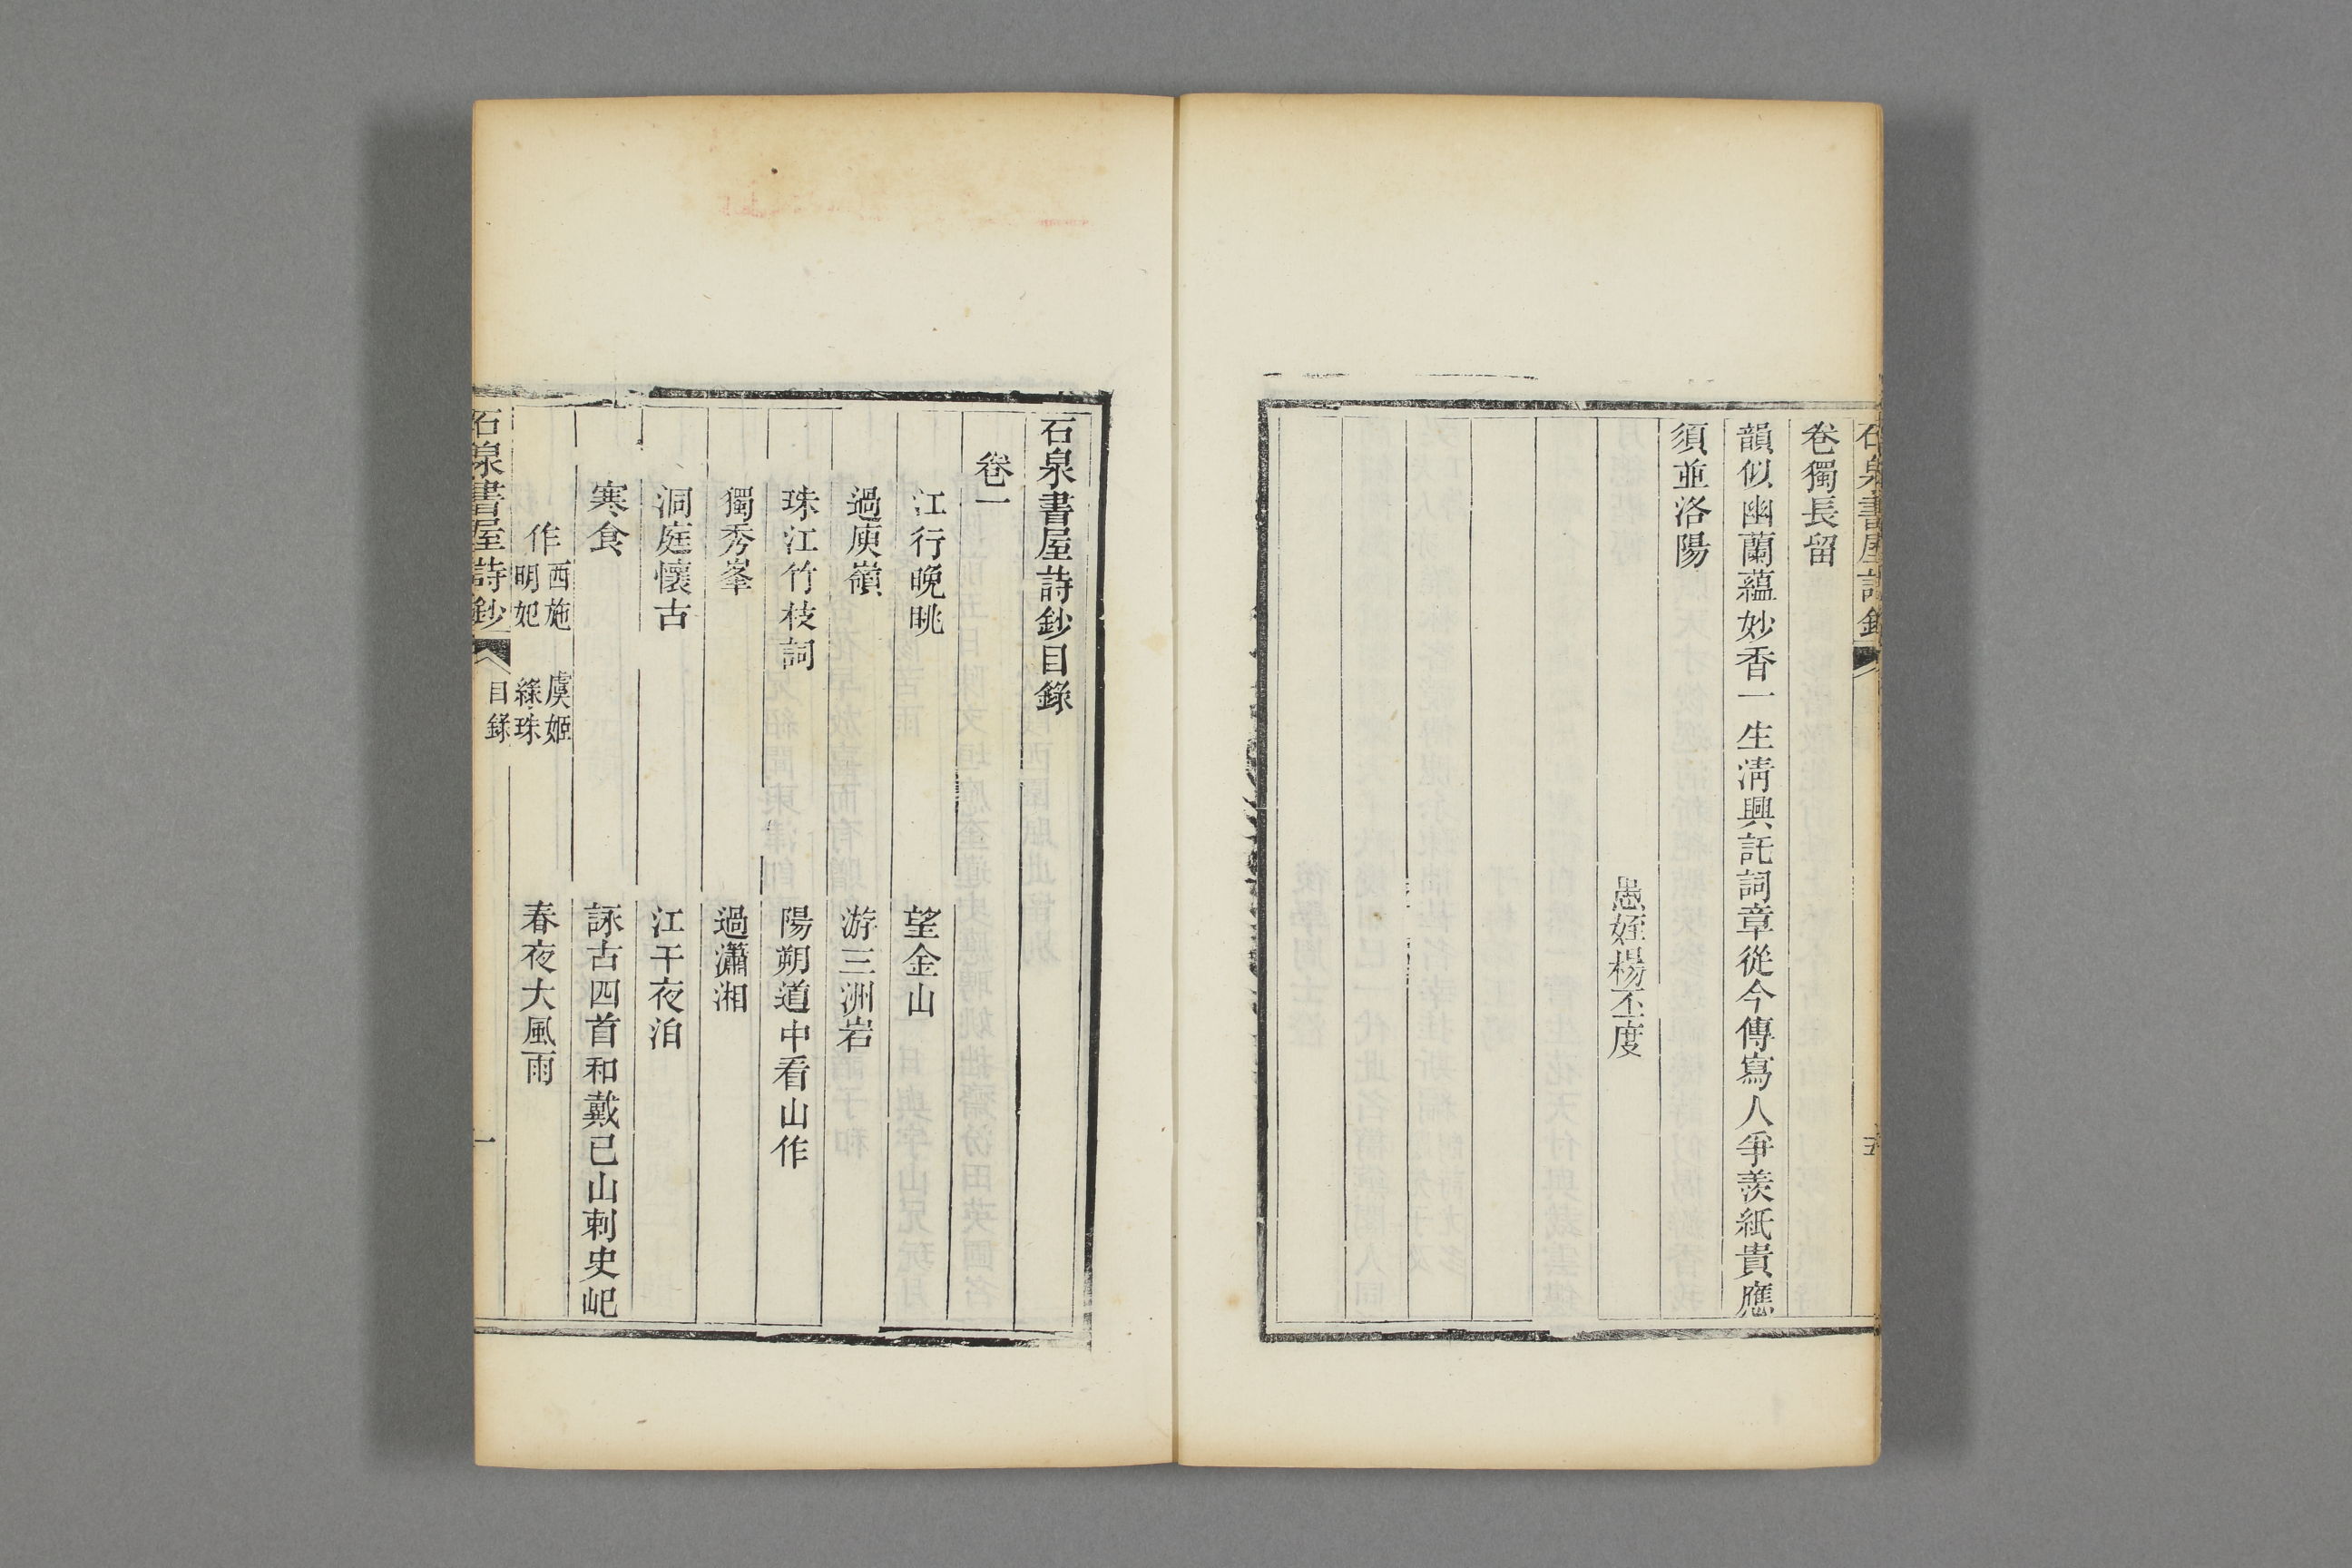 卷獨長留
韻似幽蘭蘊妙香一生淸興託詞章從今傳寫人爭羨紙貴應
須並洛陽
愚姪楊丕度
石泉書屋詩鈔目錄
卷一
江行晚眺
望金山
過庾嶺
游三洲岩
珠江竹枝詞
陽朔道中看山作
獨秀峯
過瀟湘
洞庭懷古
江干夜泊
寒食
詠古四首和戴已山刺史屺
作 西施 虞姬 明妃 綠珠
春夜大風雨
石泉書屋詩鈔 目錄 一